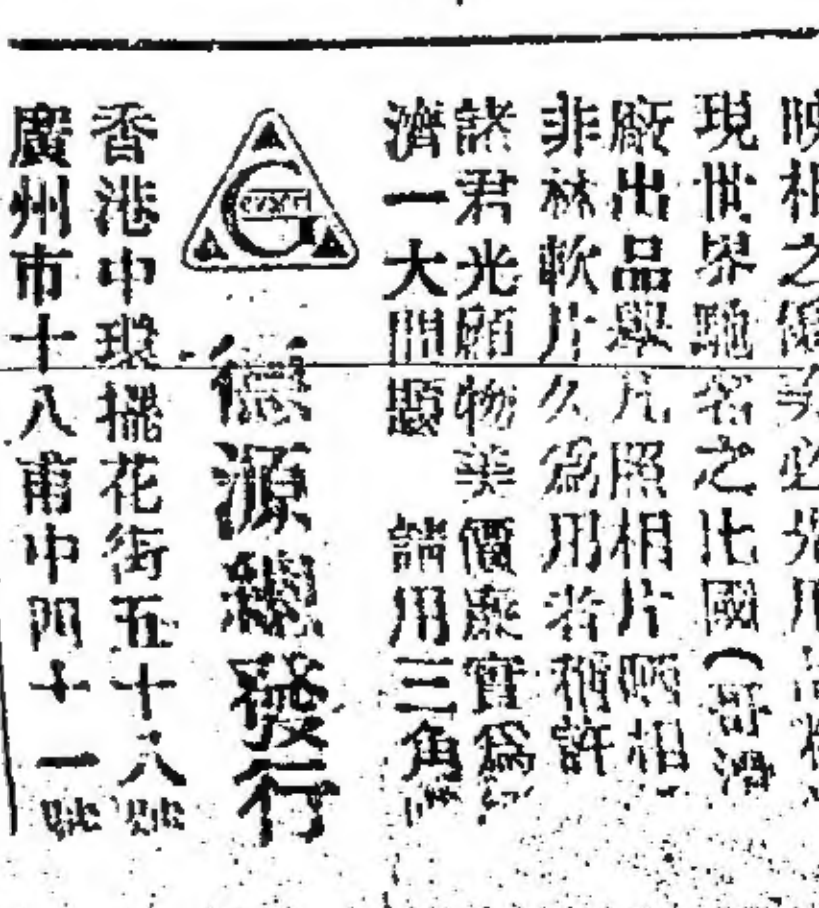 映相之優美必先用
現世界馳名之比國(哥滑
廠出品舉凡照相片晒相
非林軟片久爲用者稱許
諸君光顧物美價廉實爲
濟一大問題 請用三角
GEVAERT
德源總發行
香港中環擺花街五十八號
廣州市十八甫中四十一號